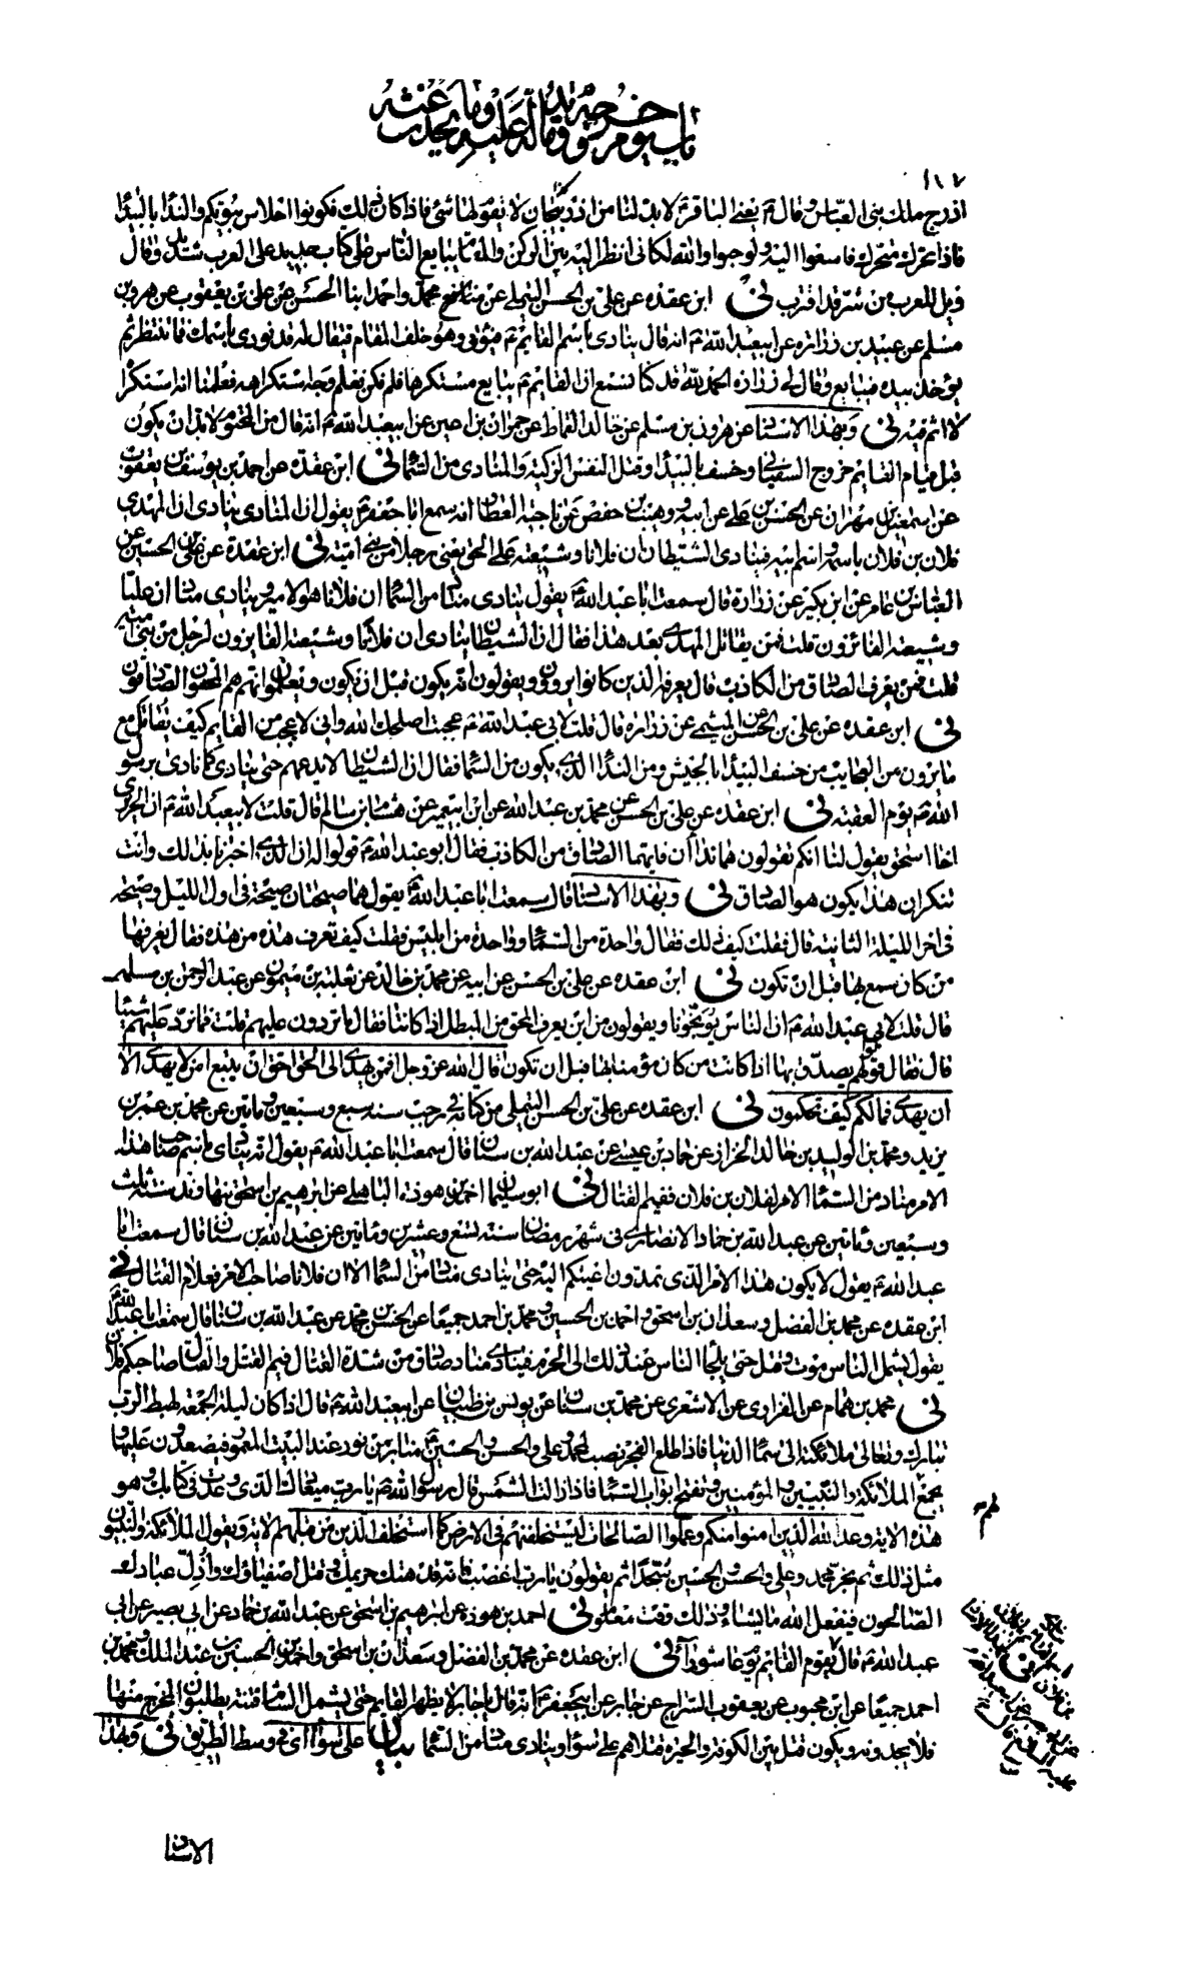 باب يوم خروجه وما يدل عليه وما يحدث عنده
١١٧
ادرج ملك بنى العباس وقال ع يعنى الباقر ع لا بد لنا من اذربيجان لا يقوم لها شئ فاذا كان ذلك فكونوا احلاس بيوتكم والندا بالبيدا
فاذا تحرك متحرك فاسعوا اليه ولو حبوا والله لكانى انظر اليه بين الركن والمقام يبايع الناس على كتاب جديد على العرب شديد وقال
ويل للعرب من شر قد اقترب نى ابن عقده عن على بن الحسن التيملى عن محمد واحمد ابنا الحسن عن على بن يعقوب عن هرون بن
مسلم عن عبيد بن زراره عن ابيعبد الله ع انه قال ينادى باسم القايم ع فيؤتى وهو خلف المقام فيقال له قد نودى باسمك فما تنتظر ثم
يؤخذ بيده فيبايع وقال لى زراره الحمد لله قد كنا نسمع ان القايم ع يبايع مستكرها فلم نكن نعلم وجه استكراهه فعلمنا انه استكراه
لا اثم فيه نى وبهذا الاسناد عن هرون بن مسلم عن خالد القماط عن حمران بن اعين عن ابيعبد الله ع انه قال من المحتوم لابد ان يكون
قبل قيام القايم خروج السفيانى وخسف بالبيدا وقتل النفس الزكيه والمنادى من السما نى ابن عقده عن احمد بن يوسف بن يعقوب
عن اسمعيل بن مهران عن الحسن بن على عن ابيه ووهيب بن حفص عن ناجيه القطان انه سمع ابا جعفر ع يقول ان المنادى ينادى ان المهدى
فلان بن فلان باسمه واسم ابيه فينادى الشيطان ان فلانا وشيعته على الحق يعنى رجلا من بنى اميه نى ابن عقدة عن على بن الحسين عن
العباس بن عامر عن ابن بكير عن زرارة قال سمعت ابا عبد الله ع يقول ينادى مناد من السما ان فلانا هو الامير وينادى مناد ان عليا
وشيعته الفائزون قلت فمن يقاتل المهدى بعد هذا فقال ان الشيطان ينادى ان فلانا وشيعته الفايزون لرجل من بنى اميه
قلت فمن يعرف الصادق من الكاذب قال يعرفه الذين كانوا يروون ويقولون انه يكون قبل ان يكون ويعلمون انهم هم المحقون الصادقون
نى ابن عقده عن على بن الحسن عن الميثمى عن زراره قال قلت لابى عبد الله ع عجبت اصلحك الله وانى لاعجب من القايم كيف يقاتل مع
ما يرون من العجايب من خسف البيدا بالجيش ومن الندا الذى يكون من السما فقال ان الشيطان لا يدعهم حتى ينادى كما نادى برسول
الله ص يوم العقبه نى ابن عقده عن على بن الحسن عن محمد بن عبد الله عن ابن ابيعمير عن هشام بن سالم قال قلت لابيعبد الله ع ان الجريرى
اخا اسحق يقول لنا انكم تقولون هما نداان فايهما الصادق من الكاذب فقال ابو عبد الله ع قولوا له ان الذى اخبرنا بذلك وانت
تنكر ان هذا يكون هو الصادق نى وبهذا الاسناد قال سمعت ابا عبد الله ع يقول هما صيحتان صيحة فى اول الليل وصيحه
فى اخر الليلة الثانيه قال فقلت كيف ذلك فقال واحدة من السما وواحدة من ابليس فقلت كيف تعرف هذه من هذه فقال يعرفها
من كان سمع بها قبل ان تكون نى ابن عقده عن على بن الحسن عن ابيه عن محمد بن خالد عن ثعلبة بن ميمون عن عبد الرحمن بن مسلمه
قال قلت لابى عبد الله ع ان الناس يوبخونا ويقولون من اين يعرف المحق من المبطل اذا كانتا فقال ما تردون عليهم قلت فما نرد عليهم شيئا
قال فقال قولوا لهم يصدق بها اذا كانت من كان مؤمنا بها قبل ان تكون قال الله عز وجل افمن يهدى الى الحق احق ان يتبع امن لا يهدى الا
ان يهدى فما لكم كيف تحكمون نى ابن عقده عن على بن الحسن التيملى من كتابه فى رجب سنه سبع وسبعين وماتين عن محمد بن عمر بن
يزيد ومحمد بن الوليد بن خالد الخزاز عن حماد بن عيسى عن عبد الله بن سنان قال سمعت ابا عبد الله ع يقول انه ينادى باسم صاحب هذا
الامر مناد من السما الامر لفلان بن فلان ففيم القتال نى ابو سليمان احمد بن هوذه الباهلى عن ابرهيم بن اسحق بنهاوند سنه ثلث
وسبعين وماتين عن عبد الله بن حماد الانصارى فى شهر رمضان سنه تسع وعشرين وماتين عن عبد الله بن سنان قال سمعت ابا
عبد الله ع يقول لا يكون هذا الامر الذى تمدون اعينكم اليه حتى ينادى مناد من السما الا ان فلانا صاحب الامر فعلام القتال نى
ابن عقده عن محمد بن الفضل وسعدان بن اسحق واحمد بن الحسين ومحمد بن احمد جميعا عن الحسن بن محبوب عن عبد الله بن سنان قال سمعت ابا عبد الله ع
يقول يشمل الناس موت وقتل حتى يلجأ الناس عند ذلك الى الحرم فينادى مناد صادق من شدة القتال فيم القتل والقتال صاحبكم فلان
نى محمد بن همام عن الفزارى عن الاشعرى عن محمد بن سنان عن يونس بن ظبيان عن ابيعبد الله ع قال اذا كان ليلة الجمعة هبط الرب
تبارك وتعالى ملائكته الى سما الدنيا فاذا طلع الفجر نصب لمحمد وعلى والحسن والحسين ع منابر من نور عند البيت المعمور فيصعدون عليها و
يجمع الملائكة والنبيين والمؤمنين وتفتح ابواب السما فاذا زالت الشمس قال رسول الله ص يا رب ميعادك الذى وعدت فى كتابك وهو
هذه الاية وعد الله الذين امنوا منكم وعملوا الصالحات ليستخلفنهم فى الارض كما استخلف الذين من قبلهم الاية ويقول الملائكة والنبيون
مثل ذلك ثم يخر محمد وعلى والحسن والحسين سجدا ثم يقولون يا رب اغضب فانه قد هتك حريمك وقتل اصفياؤك واذل عبادك
الصالحون فيفعل الله ما يشاء وذلك وقت معلوم نى احمد بن هوذه عن ابرهيم بن اسحق عن عبد الله بن حماد عن ابى بصير عن ابى
عبد الله ع قال يقوم القايم يوم عاشورا نى ابن عقده عن محمد بن الفضل وسعدان بن اسحق واحمد بن الحسين بن عبد الملك ومحمد بن
احمد جميعا عن ابن محبوب عن يعقوب السراج عن جابر عن ابيجعفر ع انه قال يا جابر لا يظهر القايم حتى يشمل الشام فتنة يطلبون المخرج منها
فلا يجدونه ويكون قتل بين الكوفة والحيرة قتلاهم على سوا وينادى مناد من السما بيان على سوا اى فى وسط الطريق نى وبهذا
الاسناد